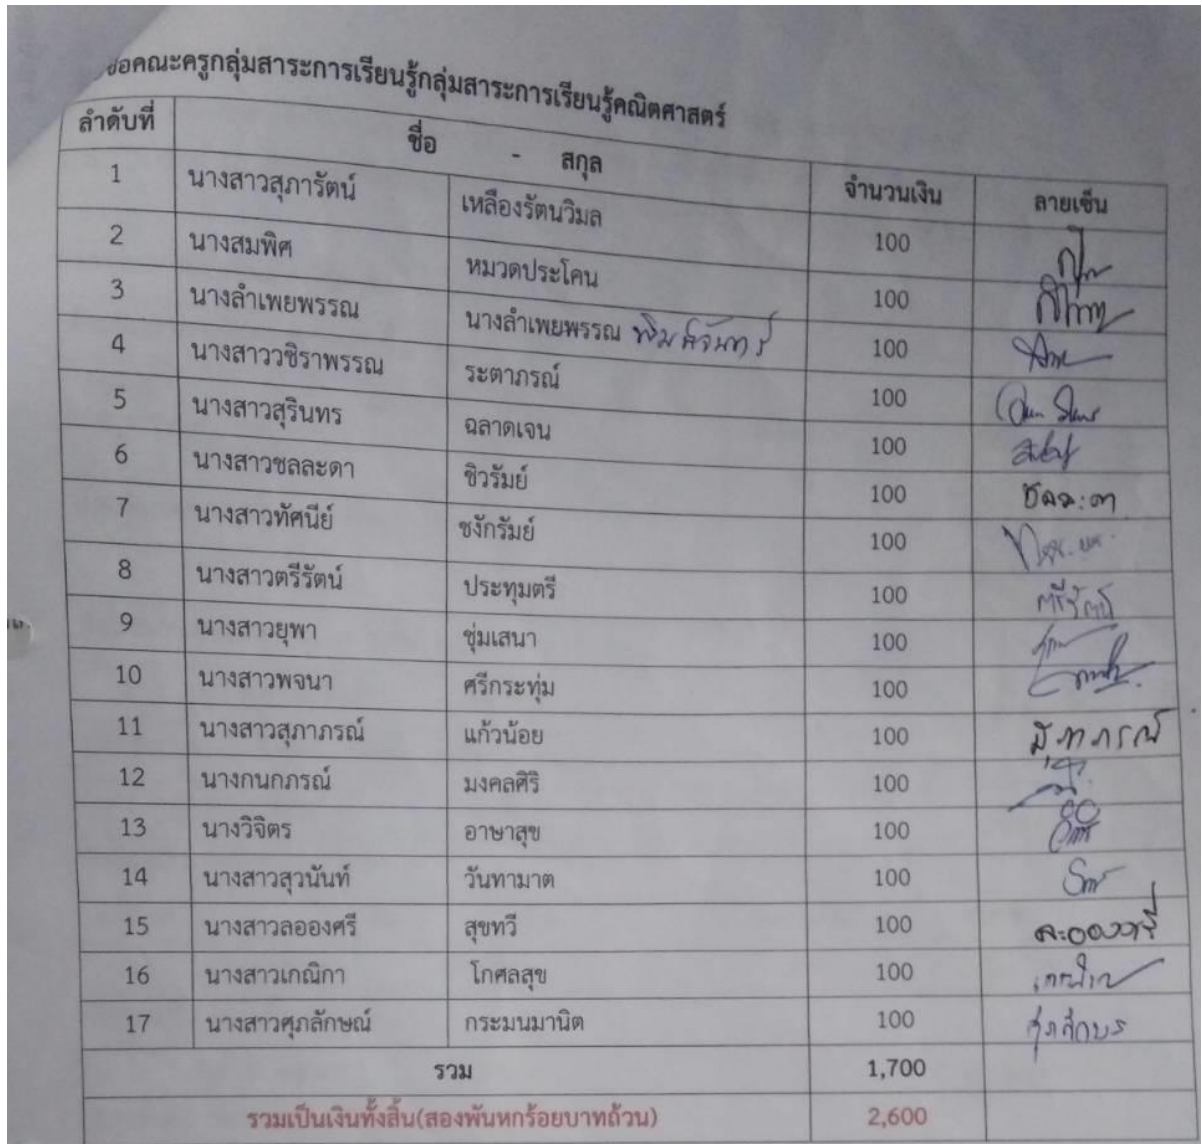 ชื่อคณะครูกลุ่มสาระการเรียนรู้กลุ่มสาระการเรียนรู้คณิตศาสตร์
ลำดับที่ ชื่อ - สกุล จำนวนเงิน ลายเซ็น
1 นางสาวสุภารัตน์ เหลืองรัตนวิมล 100
2 นางสมพิศ หมวดประโคน 100
3 นางลำเพยพรรณ นางลำเพยพรรณ พิมพ์จันทร์ 100
4 นางสาววชิราพรรณ ระตาภรณ์ 100
5 นางสาวสุรินทร ฉลาดเจน 100
6 นางสาวชลละดา ชิวรัมย์ 100 ชลละดา
7 นางสาวทัศนีย์ ชงักรัมย์ 100
8 นางสาวตรีรัตน์ ประทุมตรี 100 ตรีรัตน์
9 นางสาวยุพา ชุ่มเสนา 100
10 นางสาวพจนา ศรีกระทุ่ม 100
11 นางสาวสุภาภรณ์ แก้วน้อย 100 สุภาภรณ์
12 นางกนกภรณ์ มงคลศิริ 100
13 นางวิจิตร อาษาสุข 100
14 นางสาวสุวนันท์ วันทามาต 100
15 นางสาวลอองศรี สุขทวี 100
16 นางสาวเกณิกา โกศลสุข 100
17 นางสาวศุภลักษณ์ กระมนมานิต 100
รวม 1,700
รวมเป็นเงินทั้งสิ้น(สองพันหกร้อยบาทถ้วน) 2,600